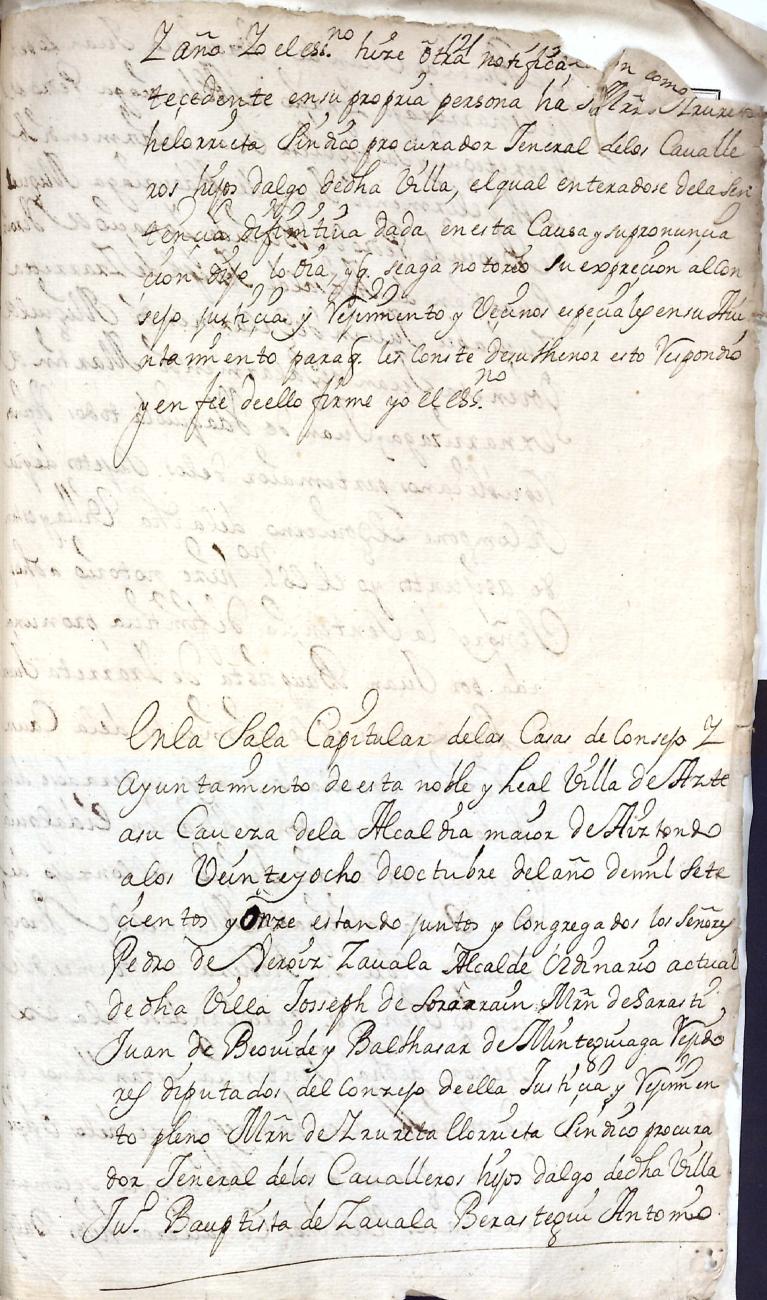 Y año Yo el ess.no hize otra notificaz on como
tecedente en su propria persona ha Mrn Yrureta
helorrieta Sindico procurador Jeneral delos Cavalle
ros hijos dalgo de dha Villa, el qual enteradose dela Sen
tencia difinitiva dada en esta Causa y su pronuncia
cion dijo lo oia, y q. seaga notorio su exprecion al Con
sejo justicia y Rejimiento y Vecinos especiales en su Aiu
ntamiento para q. les Conste de su thenor esto Respondio
y en fee de ello firme yo el ess.no
En la Sala Capitular delas Casas de Consejo Y
Ayuntamiento de esta noble y Leal Villa de Azte
asu Caveza dela Alcaldia maior de Aiztondo
alos Veinte y ocho de octubre del año de mil Sete
cientos y Onze estando juntos y Congregados los Señores
Pedro de Veroiz Zavala Alcalde Ordinario actual
de dha Villa Josseph de Sorarrain Mrn de Sarasti
Juan de Beovide y Balthasar de Minteguiaga Rejido
res diputados del Conzejo de ella Justicia y Rejimien
to pleno Mrn de Yrureta Llorrieta Sindico procura
dor Jeneral delos Cavalleros hijos dalgo de dha Villa
Ju.o Bauptista de Zavala Berastegui Antonio